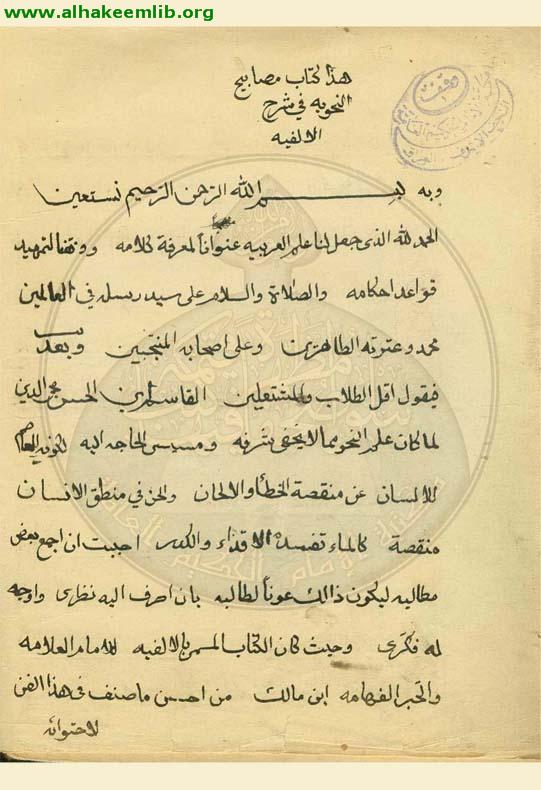 www.alhakeemlib.org
هذا كتاب مصابيح
النحويه في شرح
الالفيه
وقف
وبه بسم الله الرحمن الرحيم نستعين
الحمد لله الذى جعل لنا علم العربيه عنواناً لمعرفة كلامه ووفقنا لتمهيد
قواعد احكامه والصلاة والسلام على سيد رسله في العالمين
محمد وعترته الطاهرين وعلى اصحابه المنتجبين وبعد
فيقول اقل الطلاب والمشتغلين القاسم ابن الحسن محي الدين
لما كان علم النحو مما لا يخفى شرفه ومسيس الحاجه اليه لكونه العاصم
للالسان عن منقصة الخطأ والالحان واللحن في منطق الانسان
منقصة كالماء تفسده الاقذاء والكدر اجببت ان اجمع بعض
مطاليه ليكون ذالك عوناً لطالبه بان اصرف اليه نظرى واوجه
له فكرى وحيث كان الكتاب المسمى بالالفيه للامام العلامه
والحبر الفهامه ابن مالك من احسن ما صنف في هذا الفن
لاحتوائه